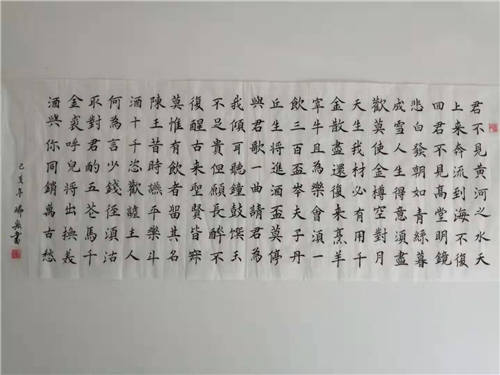 君不見黄河之水天
上来奔流到海不復
回君不見高堂明鏡
悲白發朝如青絲暮
成雪人生得意須盡
歡莫使金樽空對月
天生我材必有用千
金散盡還復来烹羊
宰牛且為樂會須一
飲三百盃岑夫子丹
丘生將進酒盃莫停
與君歌一曲請君為
我傾耳聽鐘鼓饌玉
不足貴但願長醉不
復醒古来聖賢皆寂
莫惟有飲者留其名
陳王昔時讌平樂斗
酒十千恣歡謔主人
何為言少錢徑須沽
取對君酌五花馬千
金裘呼兒將出換美
酒與你同銷萬古愁
己亥年 書